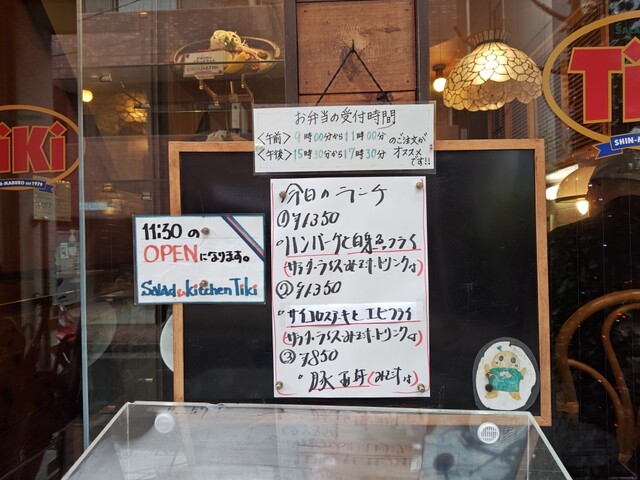 お弁当の受付時間
<午前>9時00分から11時00分
<午後>15時30分から17時30分
のご注文が
オススメ
です!!
11:30の
OPENになります。
Salad & kitchen Tiki
今日のランチ
①¥1350
・ハンバーグと白身魚フライ
(サラダ・ライス・みそ汁・ドリンク付)
②¥1350
・サイコロステーキとエビフライ
(サラダ・ライス・みそ汁・ドリンク付)
③¥850
・豚丼(みそ汁付)
TiKi